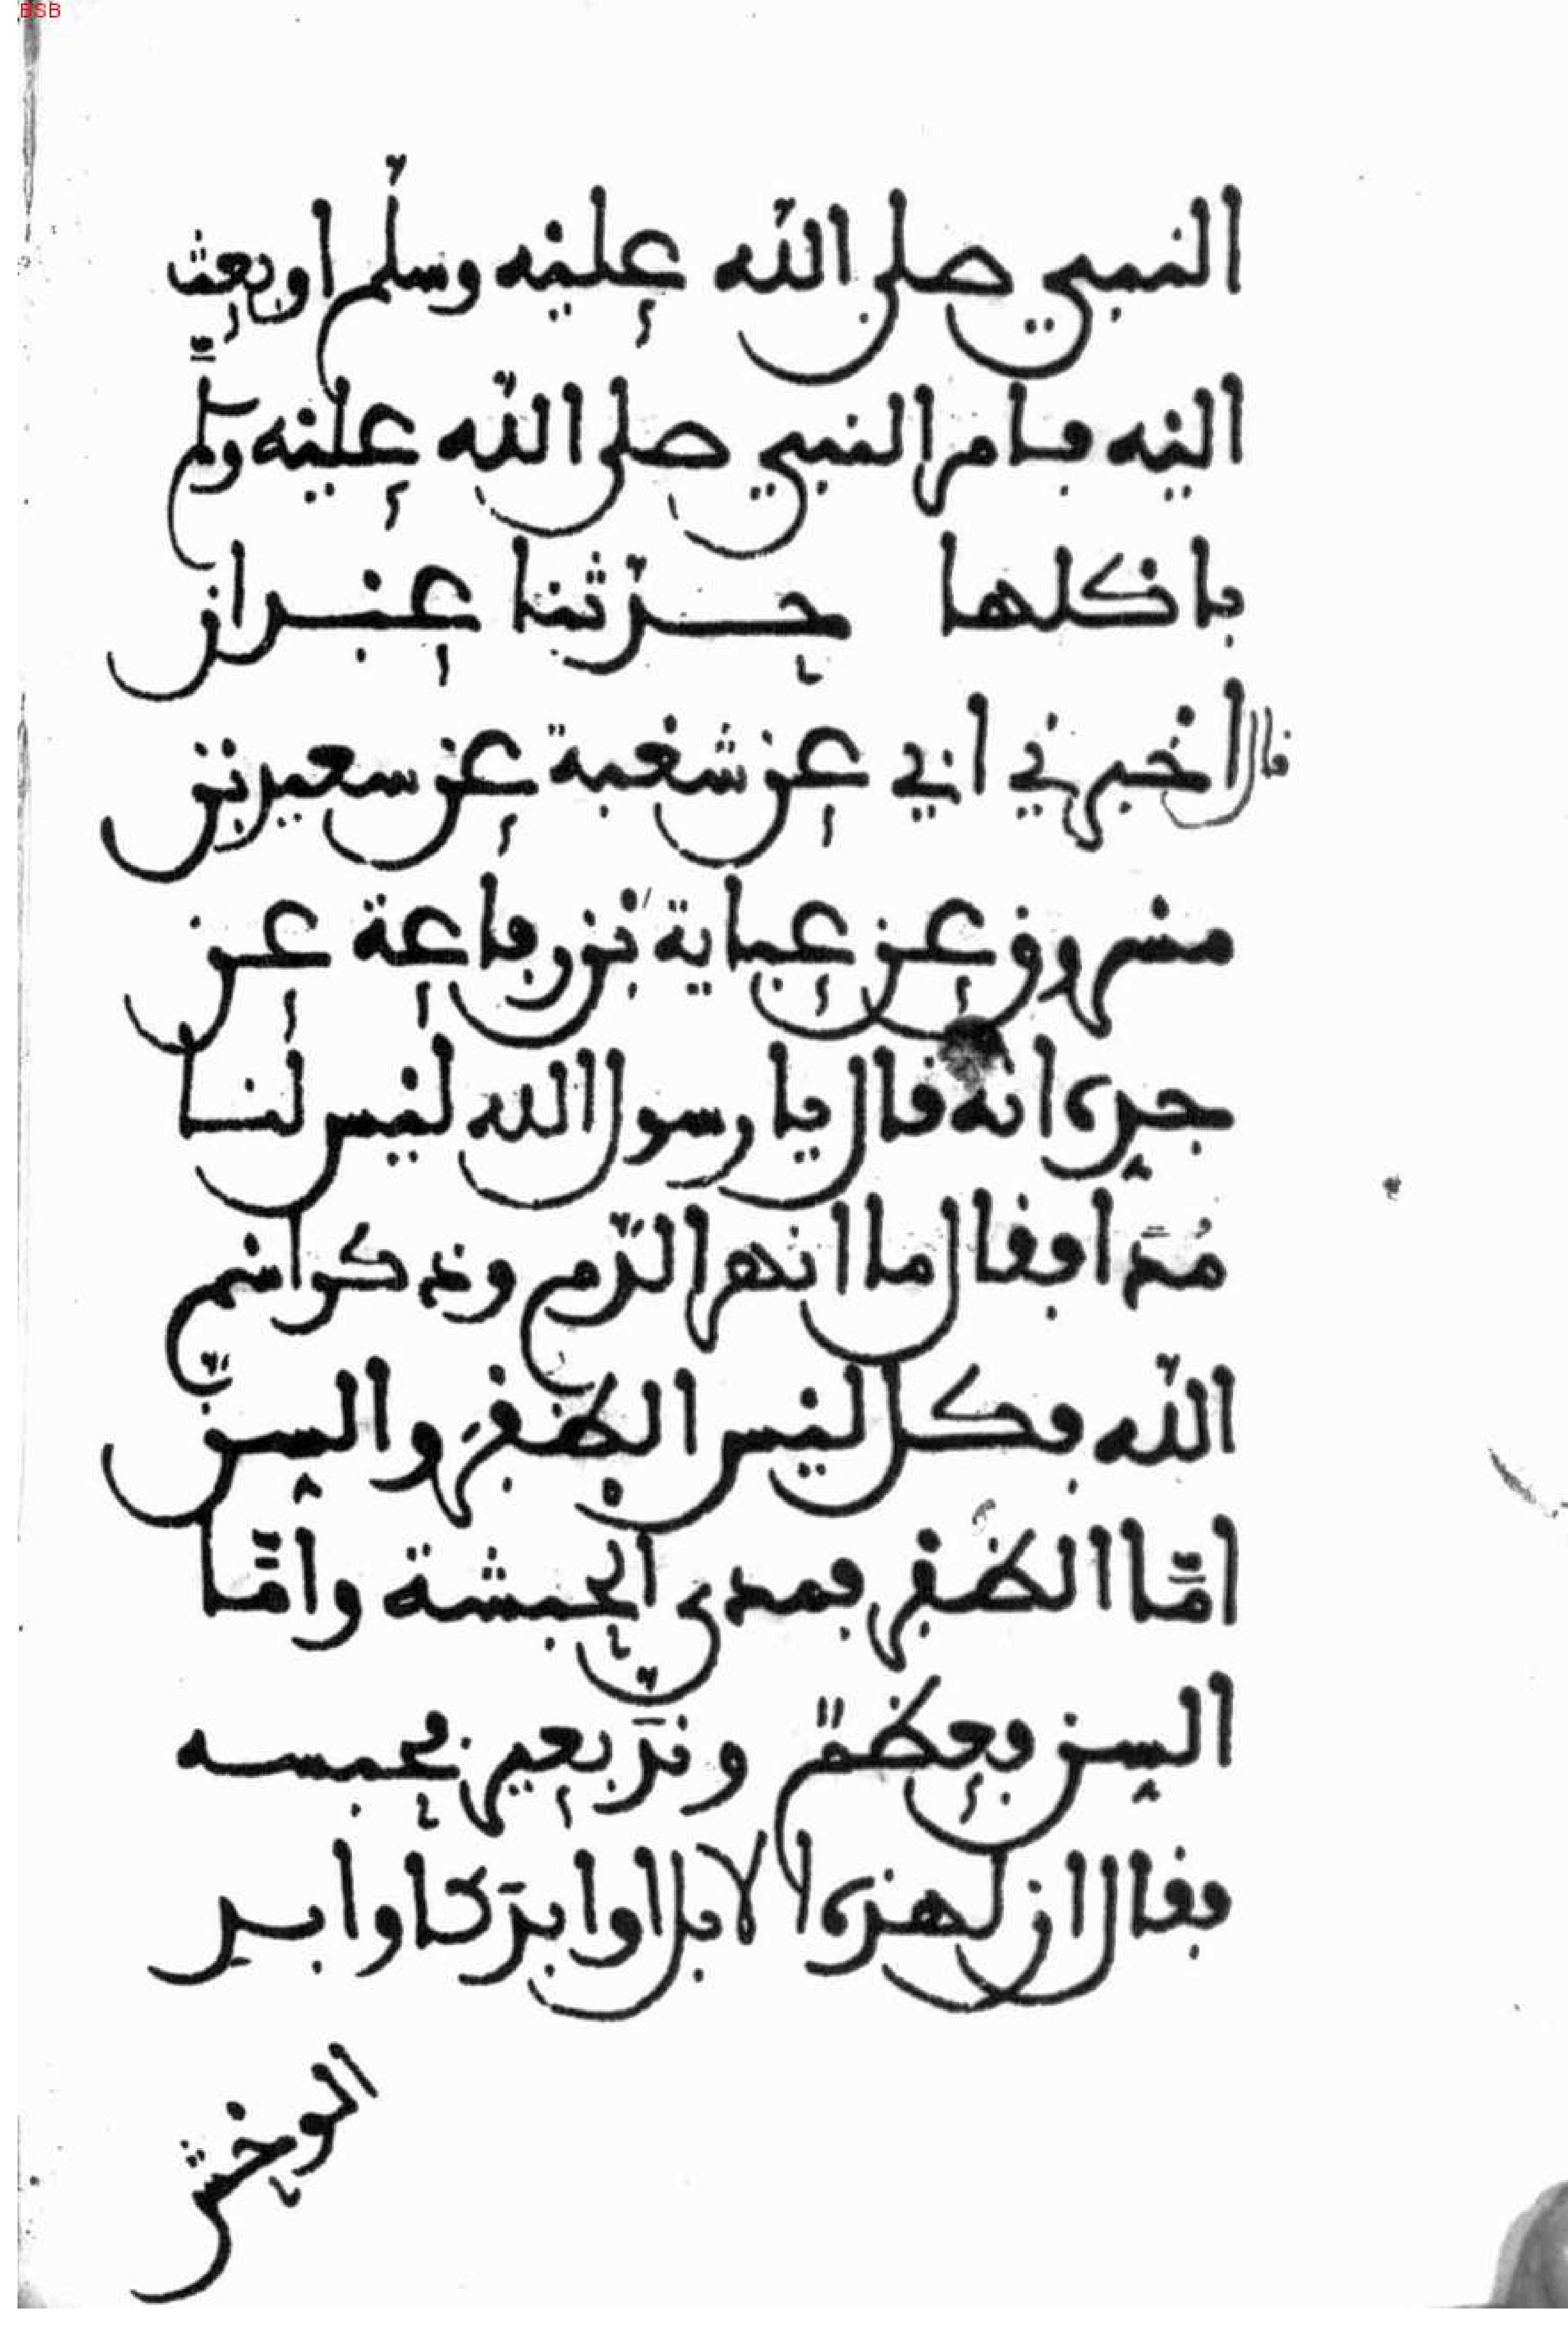 BSB
النبي صلى الله عليه وسلم او بعث
اليه فامر النبي صلى الله عليه وسلم
باكلها حدثنا عبدان
قال اخبرني ابي عن شعبة عن سعيد بن
مسروق عن عباية بن رفاعة عن
جده انه قال يا رسول الله ليس لنا
مدا فقال ما انهر الدم وذكر اسم
الله فكل ليس الظفر والسن
اما الظفر فمدى الحبشة واما
السن فعظم وند بعير فحبسه
فقال ان لهذه الابل اوابد كاوابد
الوحش